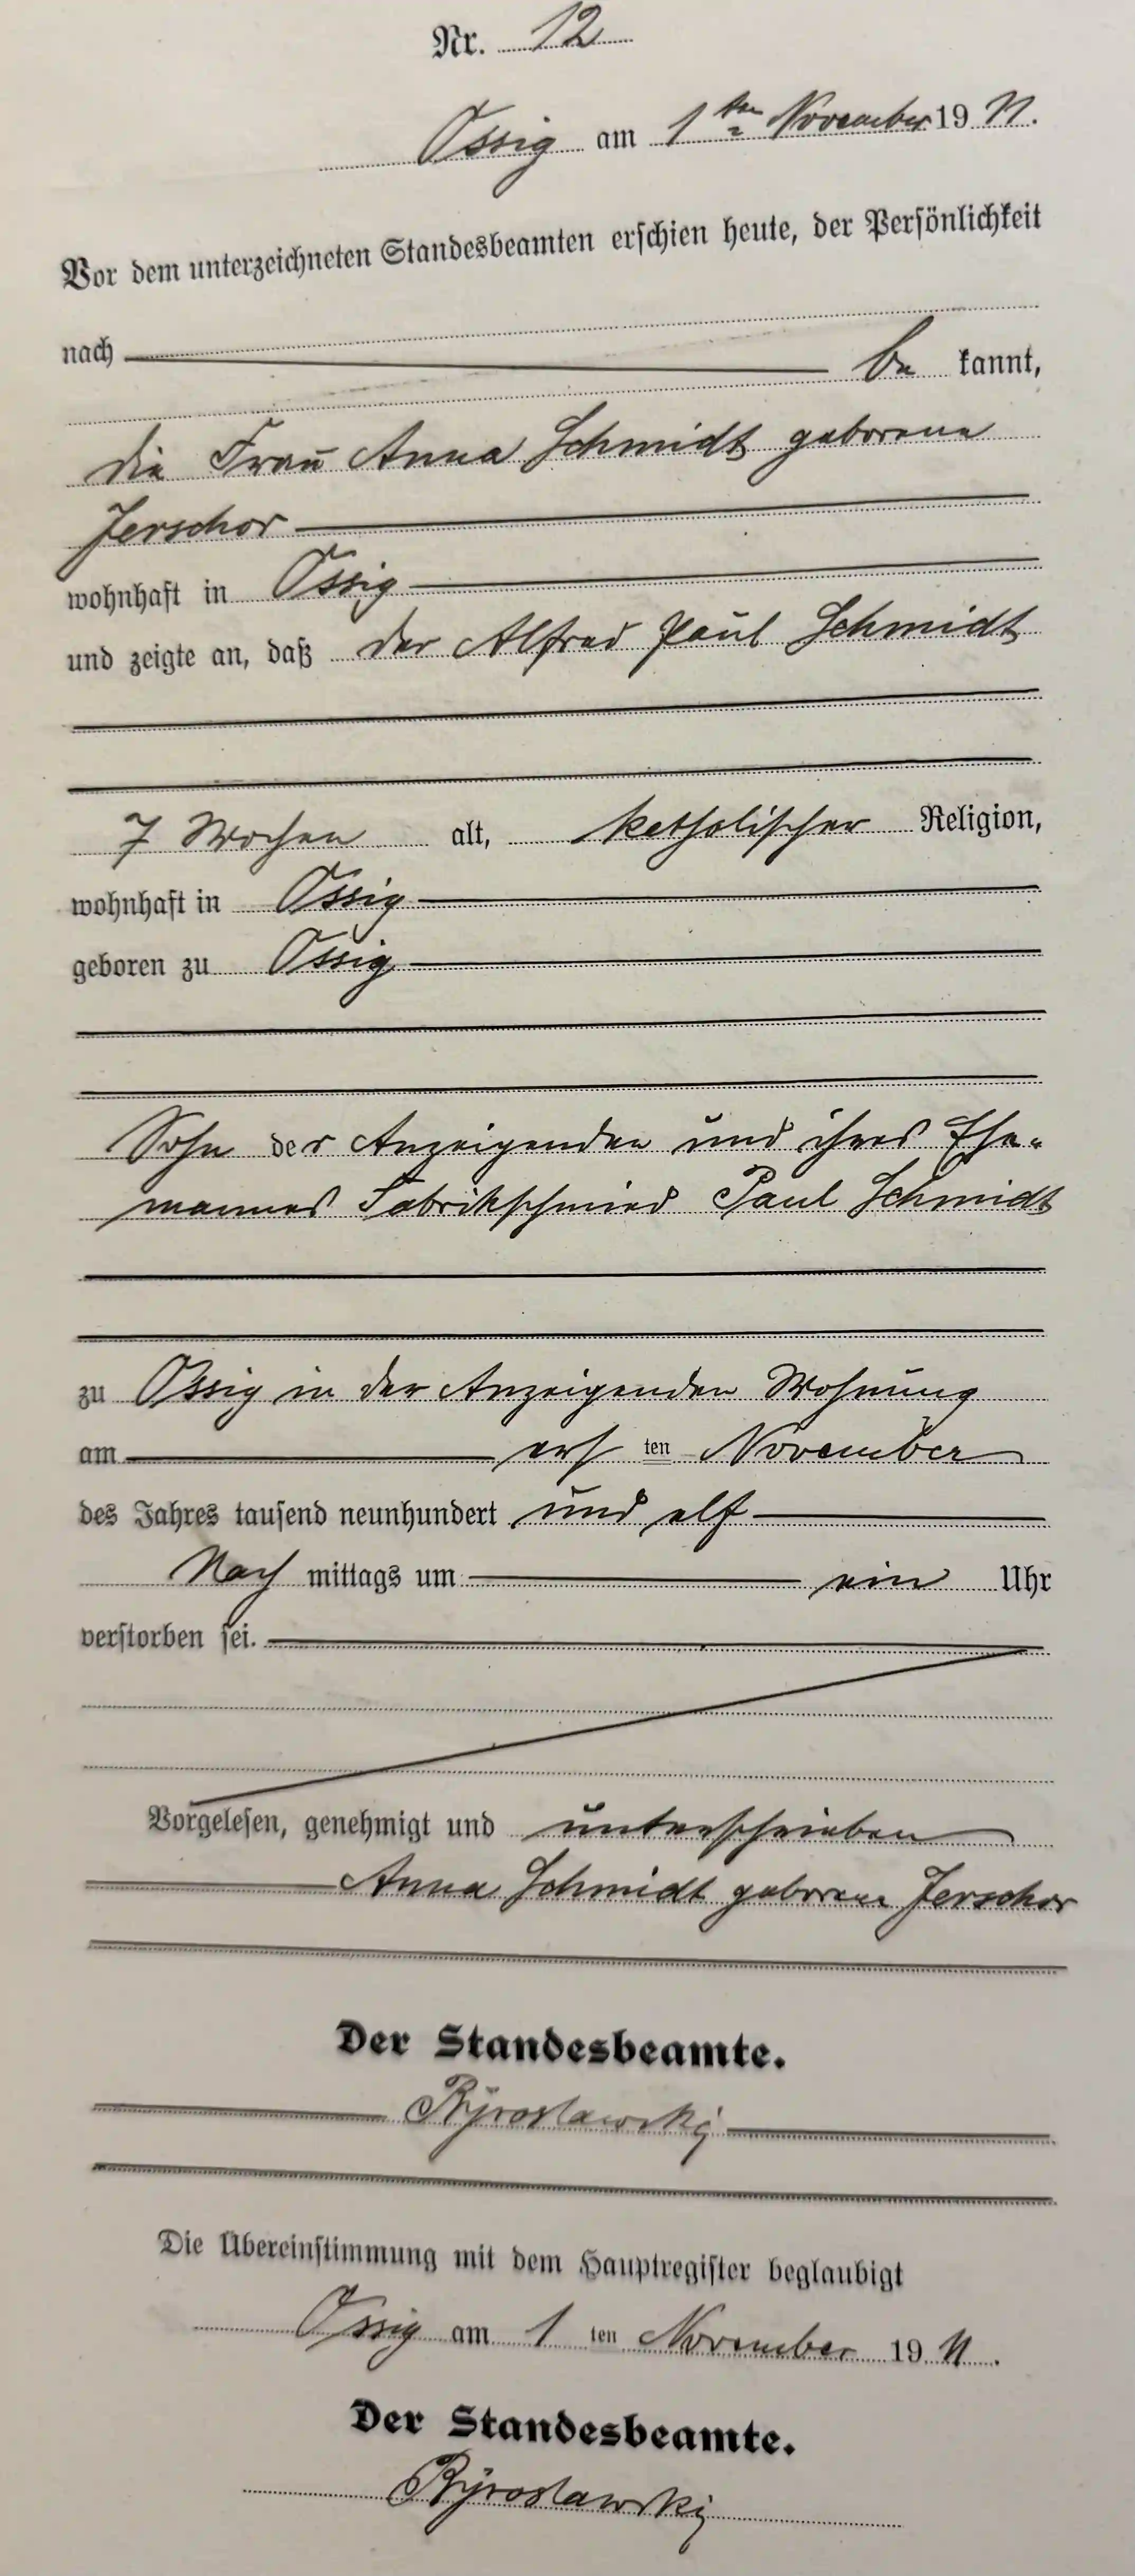 Nr. 12
Ossig am 1ten November 1911.
Vor dem unterzeichneten Standesbeamten erschien heute, der Persönlichkeit
nach be kannt,
die Frau Anna Schmidt geborene
Jerschor
wohnhaft in Ossig
und zeigte an, daß der Alfred Paul Schmidt
7 Wochen alt, katholischer Religion,
wohnhaft in Ossig
geboren zu Ossig
Sohn der Anzeigenden und ihres Ehe-
mannes Fabrikschmied Paul Schmidt
zu Ossig in der Anzeigenden Wohnung
am ersten November
des Jahres tausend neunhundert und elf
Nach mittags um ein Uhr
verstorben sei.
Vorgelesen, genehmigt und unterschrieben
Anna Schmidt geborene Jerschor
Der Standesbeamte.
Die Übereinstimmung mit dem Hauptregister beglaubigt
Ossig am 1 ten November 1911.
Der Standesbeamte.